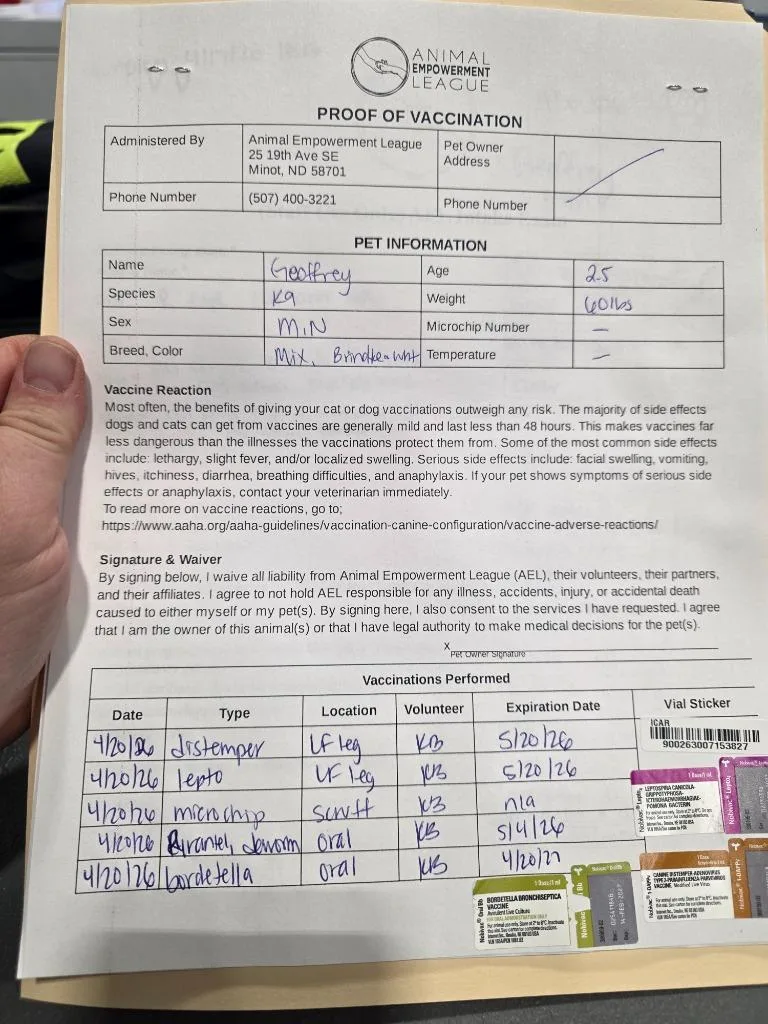 ANIMAL
EMPOWERMENT
LEAGUE
PROOF OF VACCINATION
Administered By
Animal Empowerment League
25 19th Ave SE
Minot, ND 58701
Pet Owner
Address
Phone Number
(507) 400-3221
Phone Number
PET INFORMATION
Name Geoffrey Age 2.5
Species K9 Weight 60lbs
Sex M,N Microchip Number —
Breed, Color Mix, Temperature —
Vaccine Reaction
Most often, the benefits of giving your cat or dog vaccinations outweigh any risk. The majority of side effects
dogs and cats can get from vaccines are generally mild and last less than 48 hours. This makes vaccines far
less dangerous than the illnesses the vaccinations protect them from. Some of the most common side effects
include: lethargy, slight fever, and/or localized swelling. Serious side effects include: facial swelling, vomiting,
hives, itchiness, diarrhea, breathing difficulties, and anaphylaxis. If your pet shows symptoms of serious side
effects or anaphylaxis, contact your veterinarian immediately.
To read more on vaccine reactions, go to;
https://www.aaha.org/aaha-guidelines/vaccination-canine-configuration/vaccine-adverse-reactions/
Signature & Waiver
By signing below, I waive all liability from Animal Empowerment League (AEL), their volunteers, their partners,
and their affiliates. I agree to not hold AEL responsible for any illness, accidents, injury, or accidental death
caused to either myself or my pet(s). By signing here, I also consent to the services I have requested. I agree
that I am the owner of this animal(s) or that I have legal authority to make medical decisions for the pet(s).
X
Pet Owner Signature
Vaccinations Performed
Date Type Location Volunteer Expiration Date Vial Sticker
4/20/26 distemper LF leg KB 5/20/26
4/20/26 lepto LF leg KB 5/20/26
4/20/26 microchip scruff KB n/a
4/20/26 Pyrantel, deworm oral KB 5/4/26
4/20/26 bordetella oral KB 4/20/27
ICAR
900263007153827
1 Dose/1 ml
Nobivac® Lepto4
LEPTOSPIRA CANICOLA-
GRIPPOTYPHOSA-
ICTEROHAEMORRHAGIAE-
POMONA BACTERIN
1 Dose
Nobivac® 1-DAPPv
CANINE DISTEMPER-ADENOVIRUS
TYPE 2-PARAINFLUENZA-PARVOVIRUS
VACCINE Modified Live Virus
1 Dose/1 ml
Nobivac® Oral Bb
BORDETELLA BRONCHISEPTICA
VACCINE
Avirulent Live Culture
FOR ORAL ADMINISTRATION ONLY